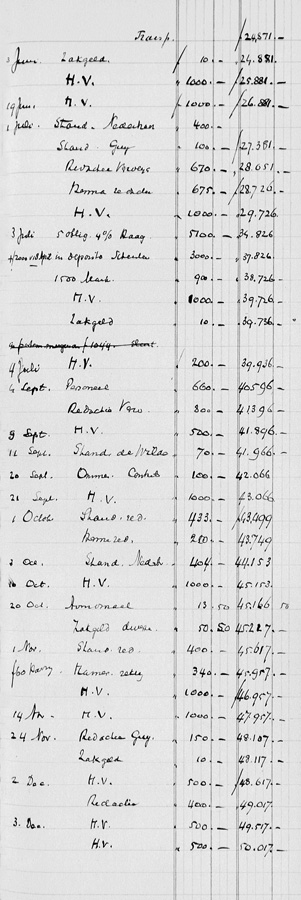 Transp. 24,871.-
2 Juni. Zakgeld 10.- 24.881.
H.V. 1000.- 25.881.-
19 Juni. H.V. 1000.- 26.881.-
1 Juli. Stand. 400.-
Stand. Grey 100.- 27.381.-
670.- 28.051.-
675.- 28.726.-
H.V. 1000.- 29.726.
3 Juli 5 oblig. 4% 5100.- 34.826
in deposito 3000.- 37.826.
1500 Mark. 900.- 38.726.-
H.V. 1000 39.726.-
Zakgeld 10.- 39.736.-
4 Juli H.V. 200.- 39.936.-
4 Sept. 660.- 40596.-
Redactie 800.- 41396.-
9 Sept. H.V. 500.- 41.896.-
12 Sept. Stand 70.- 41.966.-
20 Sept. 100.- 42.066
21 Sept. H.V. 1000.- 43.066
1 Octob. Stand. red. 433.- 43,499
250.- 43.749
2 Oct. Stand. 404.- 44.153
16 Oct. H.V. 1000.- 45.153.
20 Oct. 13.50 45.166 50
Zakgeld 50.50 45.217.-
1 Nov. Stand. red. 400.- 45.617.-
340.- 45.957.-
H.V. 1000.- 46.957.-
14 Nov. H.V. 1000.- 47.957.-
24 Nov. Redactie Grey. 150.- 48.107.-
Zakgeld 10.- 48.117.-
2 Dec. H.V. 500.- 48.617.-
Redactie 400.- 49.017.-
3. Dec. H.V. 500.- 49.517.-
H.V. 500.- 50.017.-